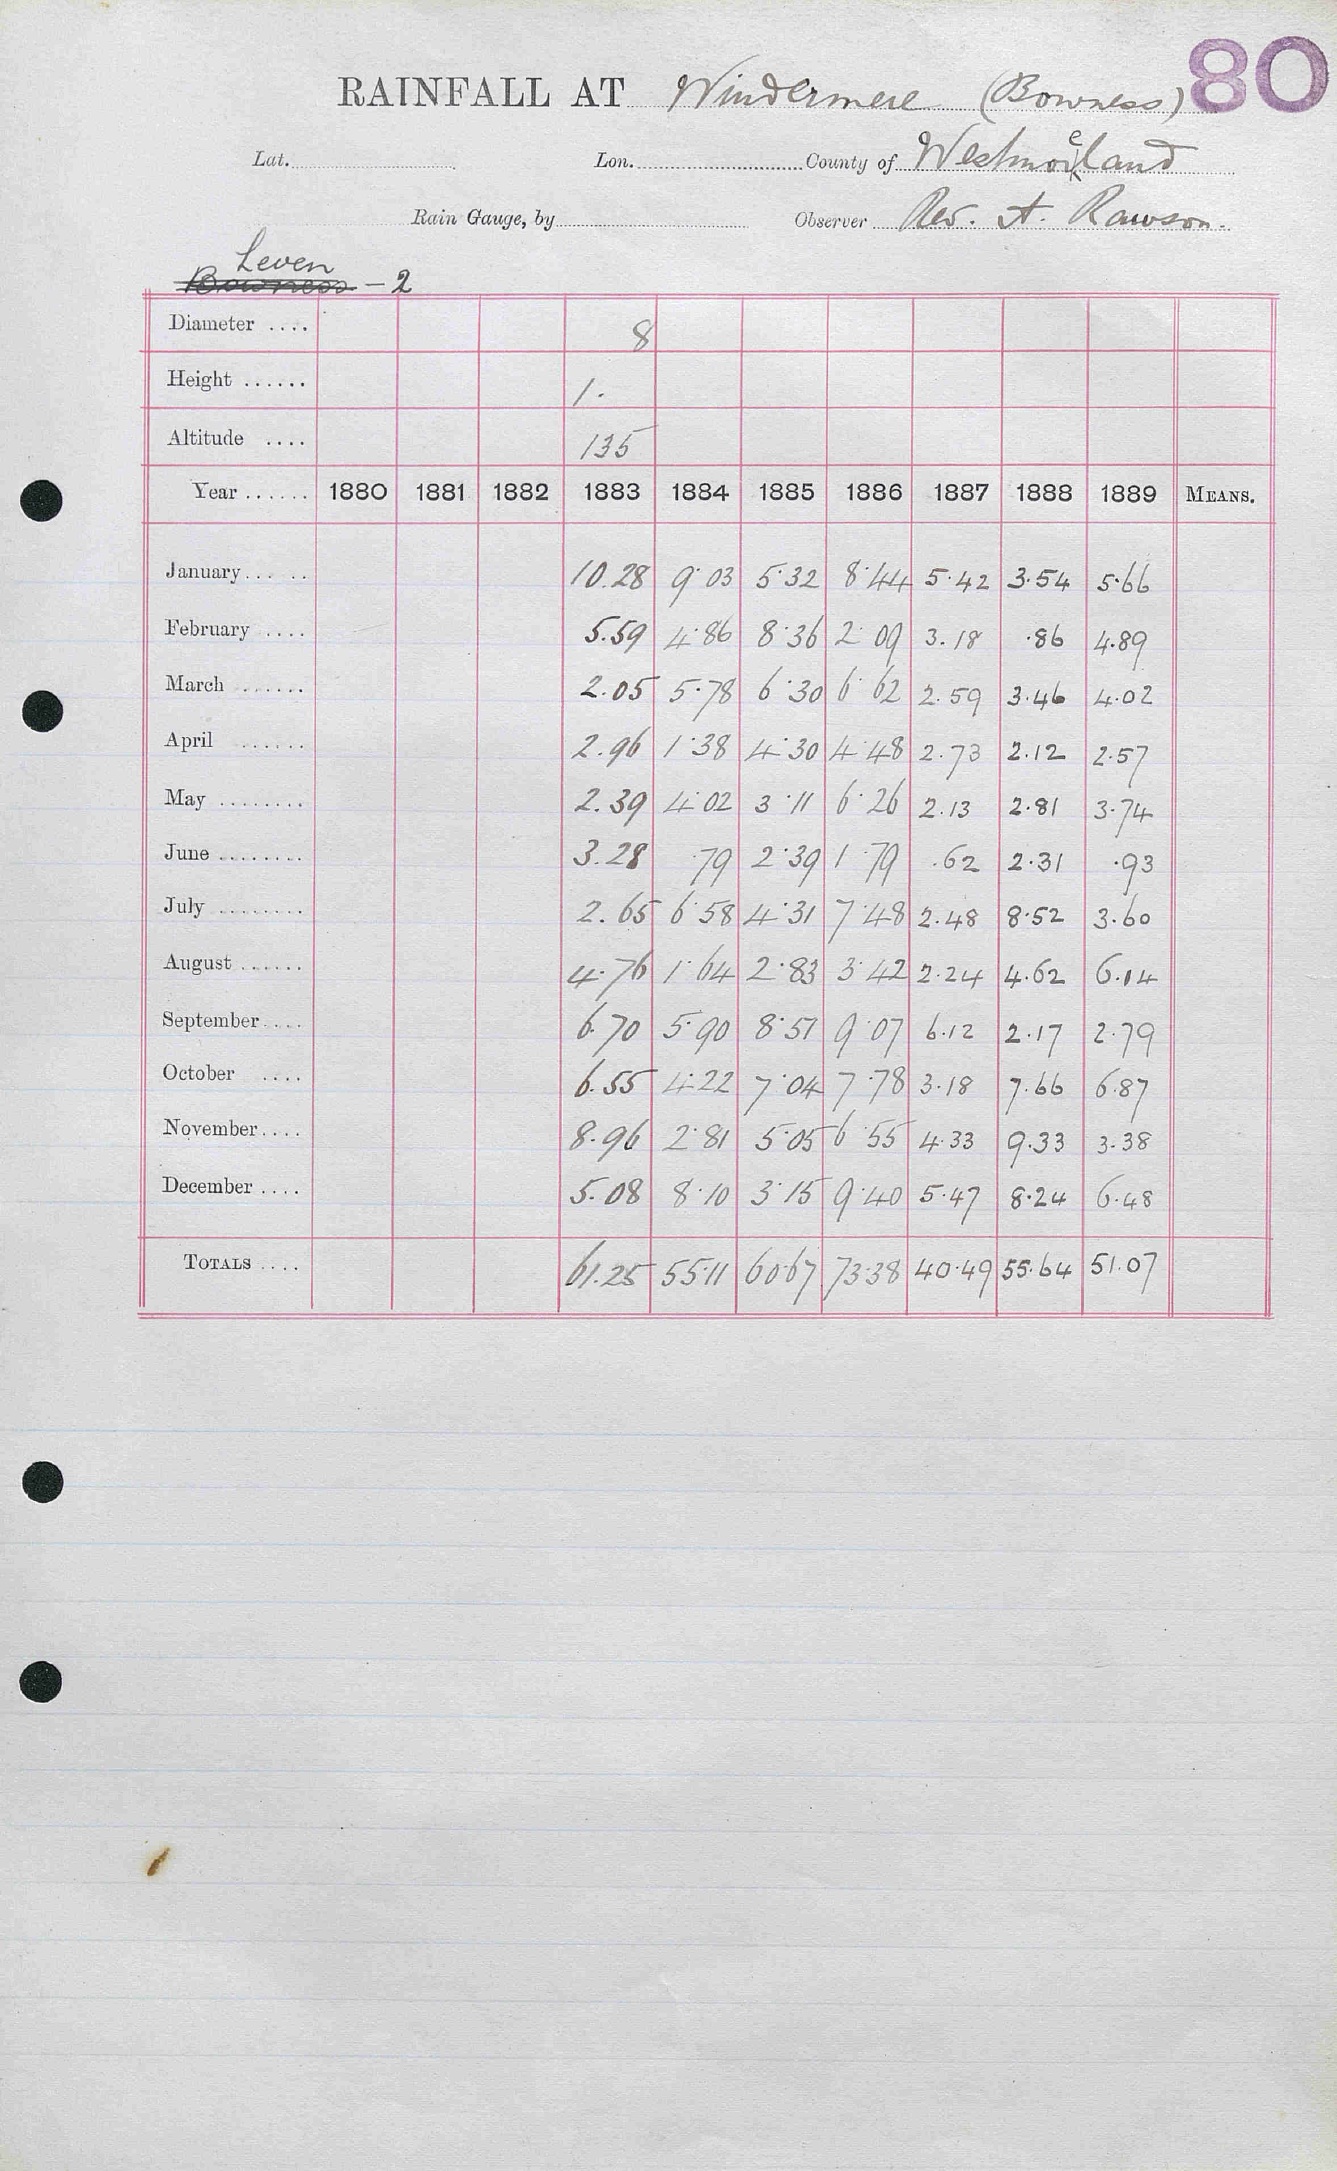 80
RAINFALL AT Windermere (Bowness)
Lat. Lon. County of Westmoreland
Rain Gauge, by Observer Rev. A. Rawson.
Leven
Bowness - 2
Diameter .... 8
Height ...... 1.
Altitude .... 135
Year ...... 1880 1881 1882 1883 1884 1885 1886 1887 1888 1889 MEANS.
January ... .. 10.28 9.03 5.32 8.44 5.42 3.54 5.66
February .... 5.59 4.86 8.36 2.09 3.18 .86 4.89
March ...... 2.05 5.78 6.30 6.62 2.59 3.46 4.02
April ...... 2.96 1.38 4.30 4.48 2.73 2.12 2.57
May ........ 2.39 4.02 3.11 6.26 2.13 2.81 3.74
June ........ 3.28 .79 2.39 1.79 .62 2.31 .93
July ........ 2.65 6.58 4.31 7.48 2.48 8.52 3.60
August ...... 4.76 1.64 2.83 3.42 2.24 4.62 6.14
September .... 6.70 5.90 8.51 9.07 6.12 2.17 2.79
October .... 6.55 4.22 7.04 7.78 3.18 7.66 6.87
November .... 8.96 2.81 5.05 6.55 4.33 9.33 3.38
December .... 5.08 8.10 3.15 9.40 5.47 8.24 6.48
TOTALS .... 61.25 55.11 60.67 73.38 40.49 55.64 51.07